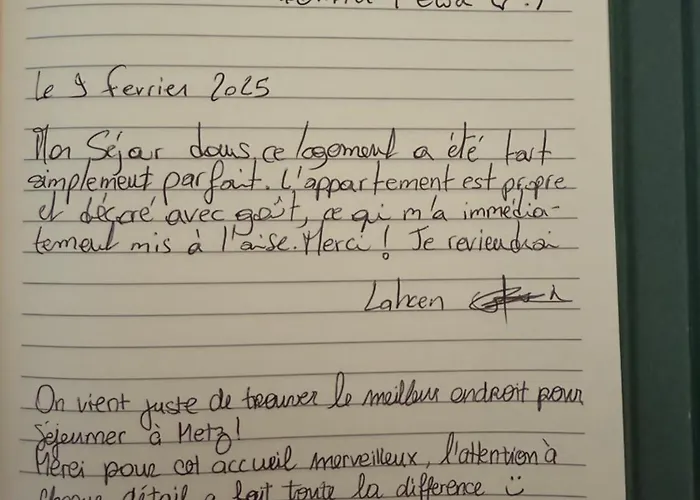 Ewa
le 9 fevrier 2025
Mon Séjour dans ce logement a été tout
simplement parfait. L'appartement est propre
et décoré avec goût, ce qui m'a immédia-
tement mis à l'aise. Merci! Je reviendrai
Lahcen
On vient juste de trouver le meilleur endroit pour
séjourner à Metz!
Merci pour cet accueil merveilleux, l'attention à
chaque détail a fait toute la difference